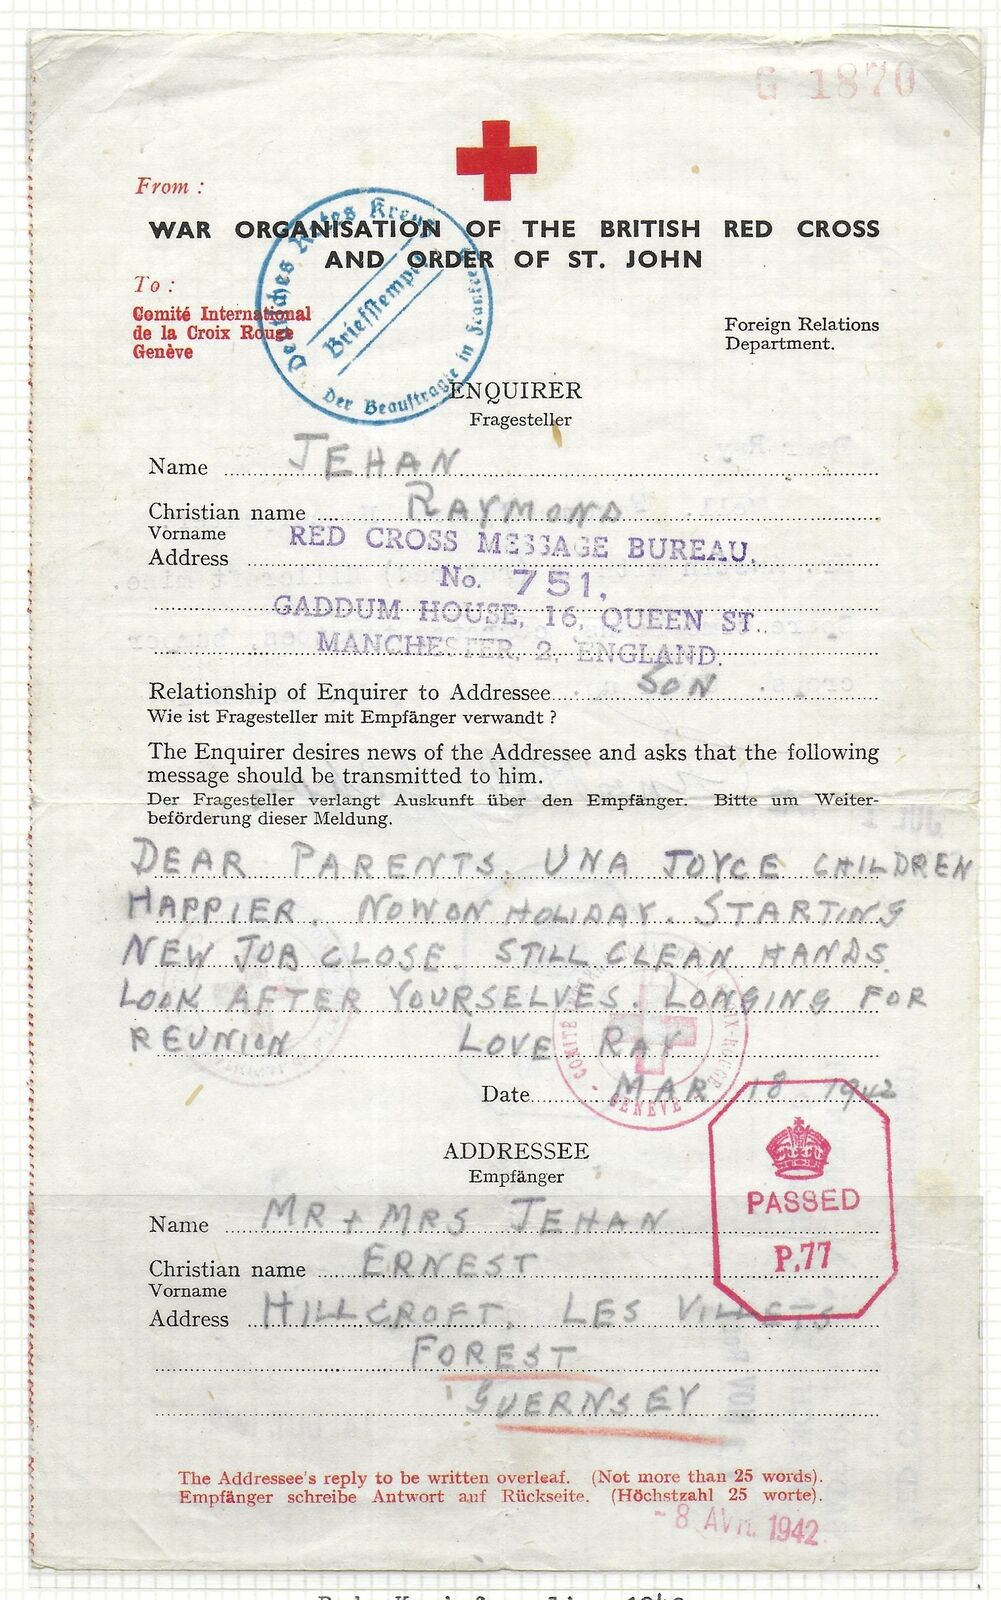 G 1870
From :
WAR ORGANISATION OF THE BRITISH RED CROSS
AND ORDER OF ST. JOHN
To :
Comité International
de la Croix Rouge
Genève
Deutsches Rotes Kreuz
Briefstempel
Der Beauftragte in
Foreign Relations
Department.
ENQUIRER
Fragesteller
Name JEHAN
Christian name RAYMOND
Vorname
Address
RED CROSS MESSAGE BUREAU,
No. 751,
GADDUM HOUSE, 16, QUEEN ST.,
MANCHESTER, 2, ENGLAND.
Relationship of Enquirer to Addressee SON
Wie ist Fragesteller mit Empfänger verwandt ?
The Enquirer desires news of the Addressee and asks that the following
message should be transmitted to him.
Der Fragesteller verlangt Auskunft über den Empfänger. Bitte um Weiter-
beförderung dieser Meldung.
DEAR PARENTS. UNA JOYCE CHILDREN
HAPPIER. NOW ON HOLIDAY. STARTING
NEW JOB CLOSE. STILL CLEAN HANDS.
LOOK AFTER YOURSELVES. LONGING FOR
REUNION LOVE RAY
COMITÉ ROUGE
GENÈVE
Date MAR 18 1942
ADDRESSEE
Empfänger
PASSED
P.77
Name MR + MRS JEHAN
Christian name ERNEST
Vorname
Address HILLCROFT, LES VILLETS
FOREST
GUERNSEY
The Addressee's reply to be written overleaf. (Not more than 25 words).
Empfänger schreibe Antwort auf Rückseite. (Höchstzahl 25 worte).
- 8 AVR. 1942